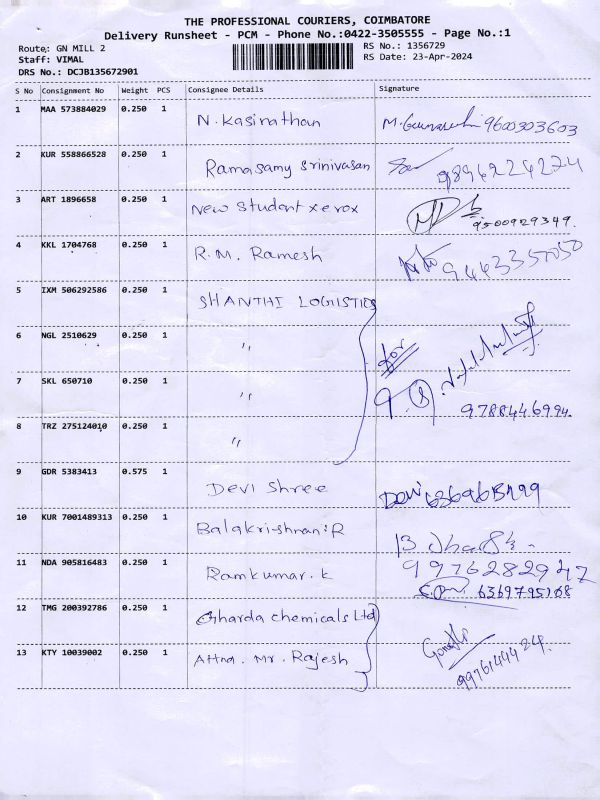 THE PROFESSIONAL COURIERS, COIMBATORE
Delivery Runsheet - PCM - Phone No.:0422-3505555 - Page No.:1
Route: GN MILL 2
RS No.: 1356729
Staff: VIMAL
RS Date: 23-Apr-2024
DRS No.: DCJB135672901
S No Consignment No Weight PCS Consignee Details Signature
1 MAA 573884029 0.250 1 N. Kasinathan 9600303603
2 KUR 558866528 0.250 1 Ramasamy Srinivasan 9894224274
3 ART 1896658 0.250 1 New Student xerox
9500929349.
4 KKL 1704768 0.250 1 R.M. Ramesh
5 IXM 506292586 0.250 1 SHANTHI LOGISTICS
6 NGL 2510629 0.250 1 " for
7 SKL 650710 0.250 1 "
9788446994.
8 TRZ 275124010 0.250 1 "
9 GDR 5383413 0.575 1 Devi Shree Devi
10 KUR 7001489313 0.250 1 Balakrishnan.R
11 NDA 905816483 0.250 1 Ramkumar.k 9976282947
6369795168
12 TMG 200392786 0.250 1 Gharda chemicals Ltd
13 KTY 10039002 0.250 1 Attna. Mr. Rajesh